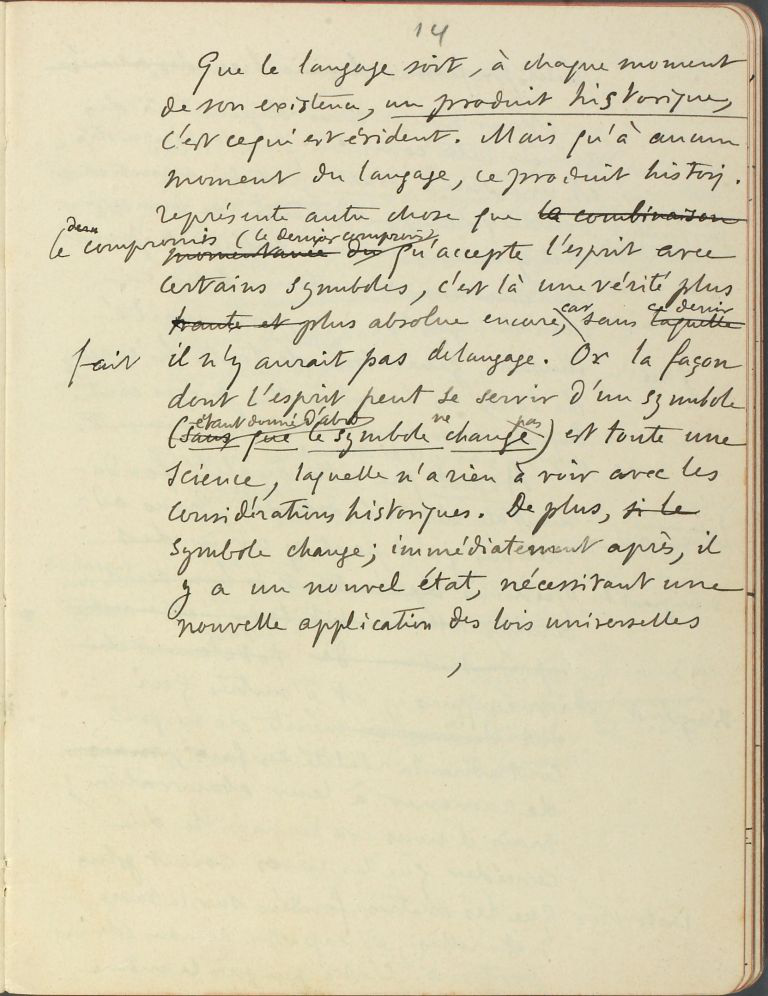 14
Que le langage soit, à chaque moment
de son existence, un produit historique,
c'est ce qui est évident. Mais qu'à aucun
moment du langage, ce produit histori.
représente autre chose que la combinaison
le dern compromis (le dernier compromis)
momentanée du qu'accepte l'esprit avec
certains symboles, c'est là une vérité plus
haute et plus absolue encore, car sans laquelle ce dernier
fait il n'y aurait pas de langage. Or la façon
dont l'esprit peut se servir d'un symbole
(étant donné d'abord
sans que le symbole ne change pas) est toute une
science, laquelle n'a rien à voir avec les
considérations historiques. De plus, si le
symbole change; immédiatement après, il
y a un nouvel état, nécessitant une
nouvelle application des lois universelles